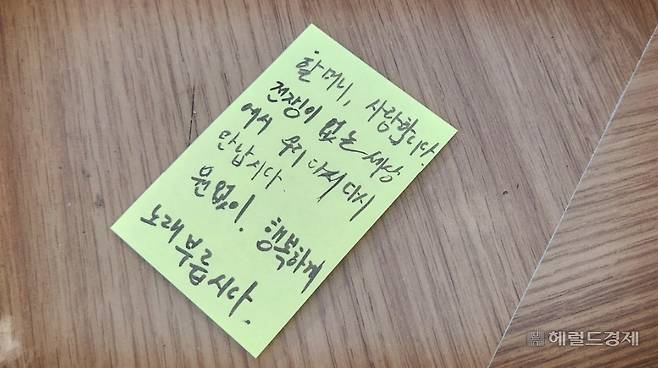 할머니, 사랑합니다.
전쟁이 없는 세상
에서 우리 다시
만납시다.
원없이. 행복하게
노래 부릅시다.
헤럴드경제